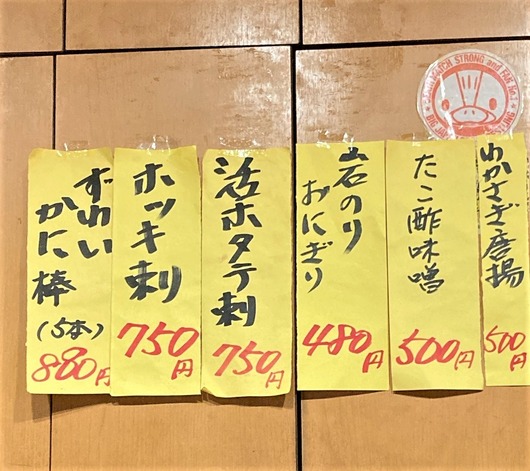 わかさぎ唐揚
500円
たこ酢味噌
500円
岩のり
おにぎり
480円
活ホタテ刺
750円
ホッキ刺
750円
ずわい
かに棒
(5本)
880円
STRONG and